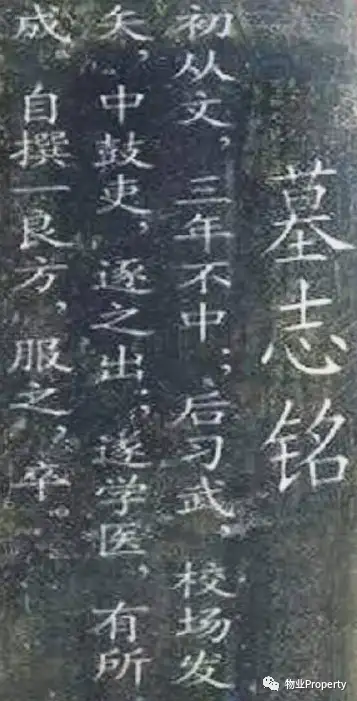 墓志铭
初从文，三年不中；后习武，校场发
矢，中鼓吏，逐之出；遂学医，有所
成。自撰一良方，服之，卒。
物业Property